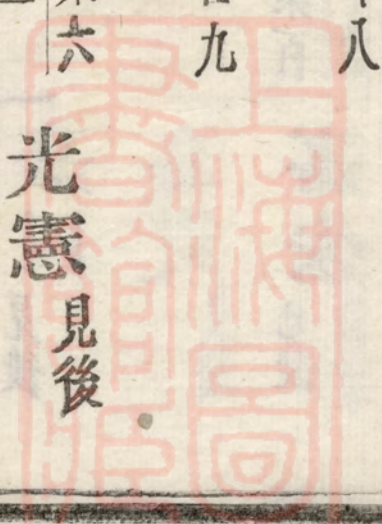 八
九
六
光憲見後
上海圖
書館藏